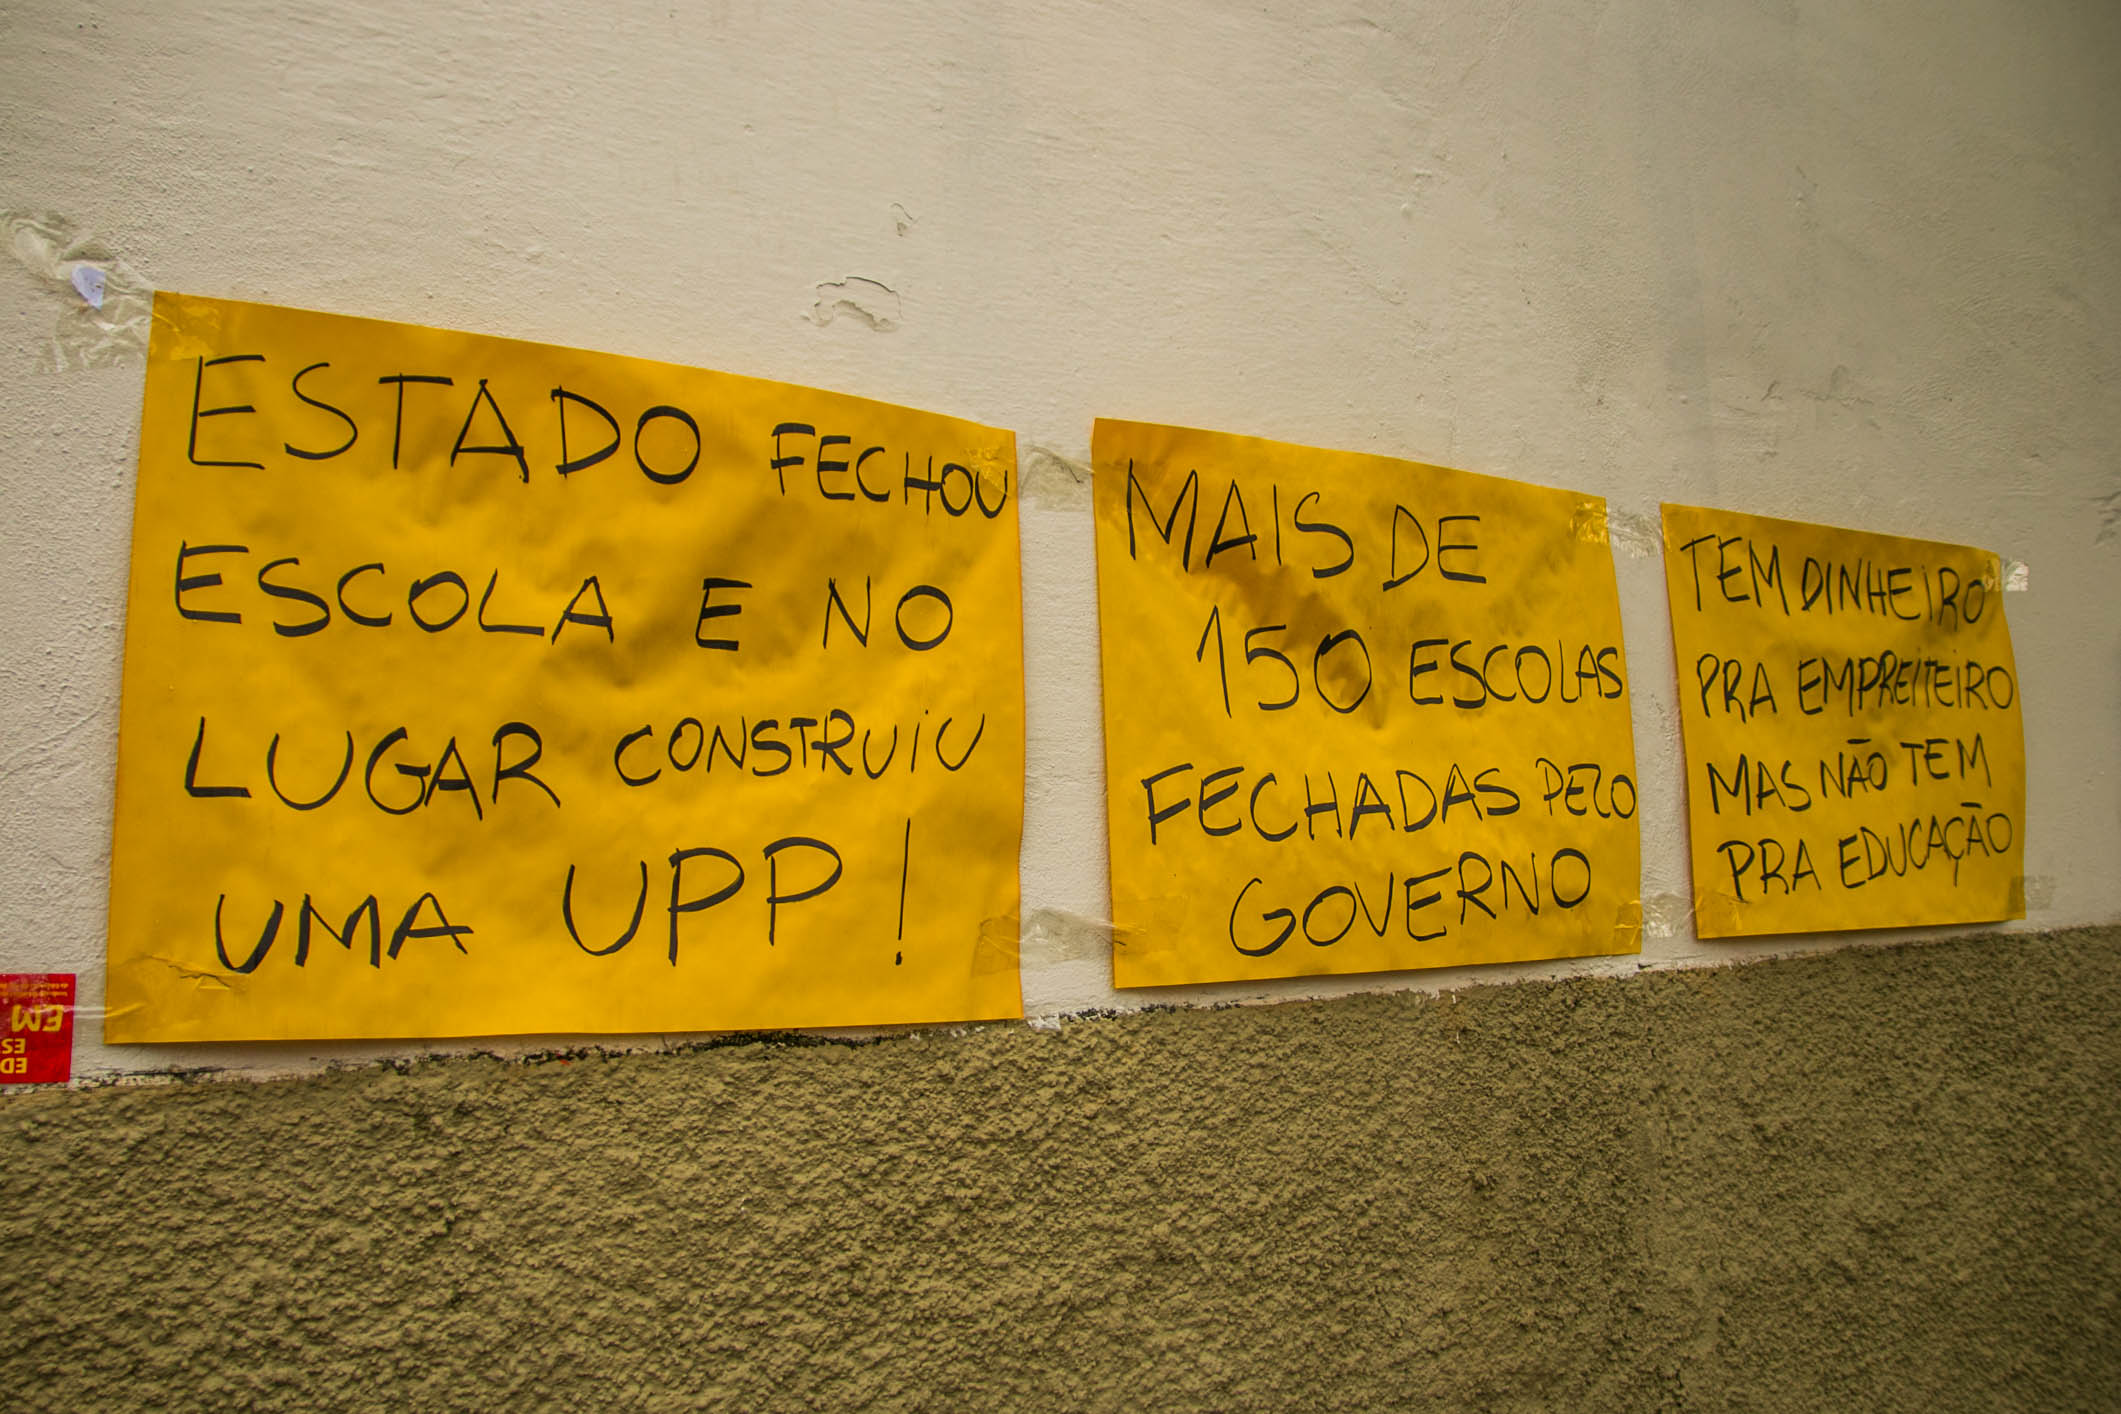 ESTADO FECHOU
ESCOLA E NO
LUGAR CONSTRUIU
UMA UPP!
MAIS DE
150 ESCOLAS
FECHADAS PELO
GOVERNO
TEM DINHEIRO
PRA EMPREITEIRO
MAS NÃO TEM
PRA EDUCAÇÃO
EM
ES
ED